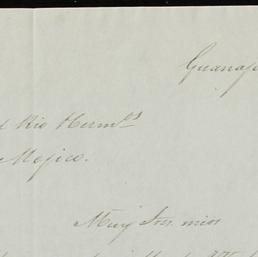 Guanaj
l Rio Herm.os
Mejico.
Muy Srs. mios